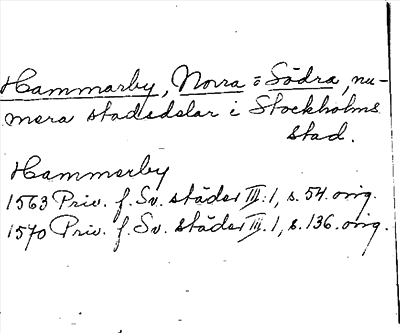 Hammarby, Norra o Södra, nu-
mera stadsdelar i Stockholms
stad.
Hammarby
1563 Priv. f. Sv. städer III:1, s. 54. orig.
1570 Priv. f. Sv. städer III:1, s. 136. orig.